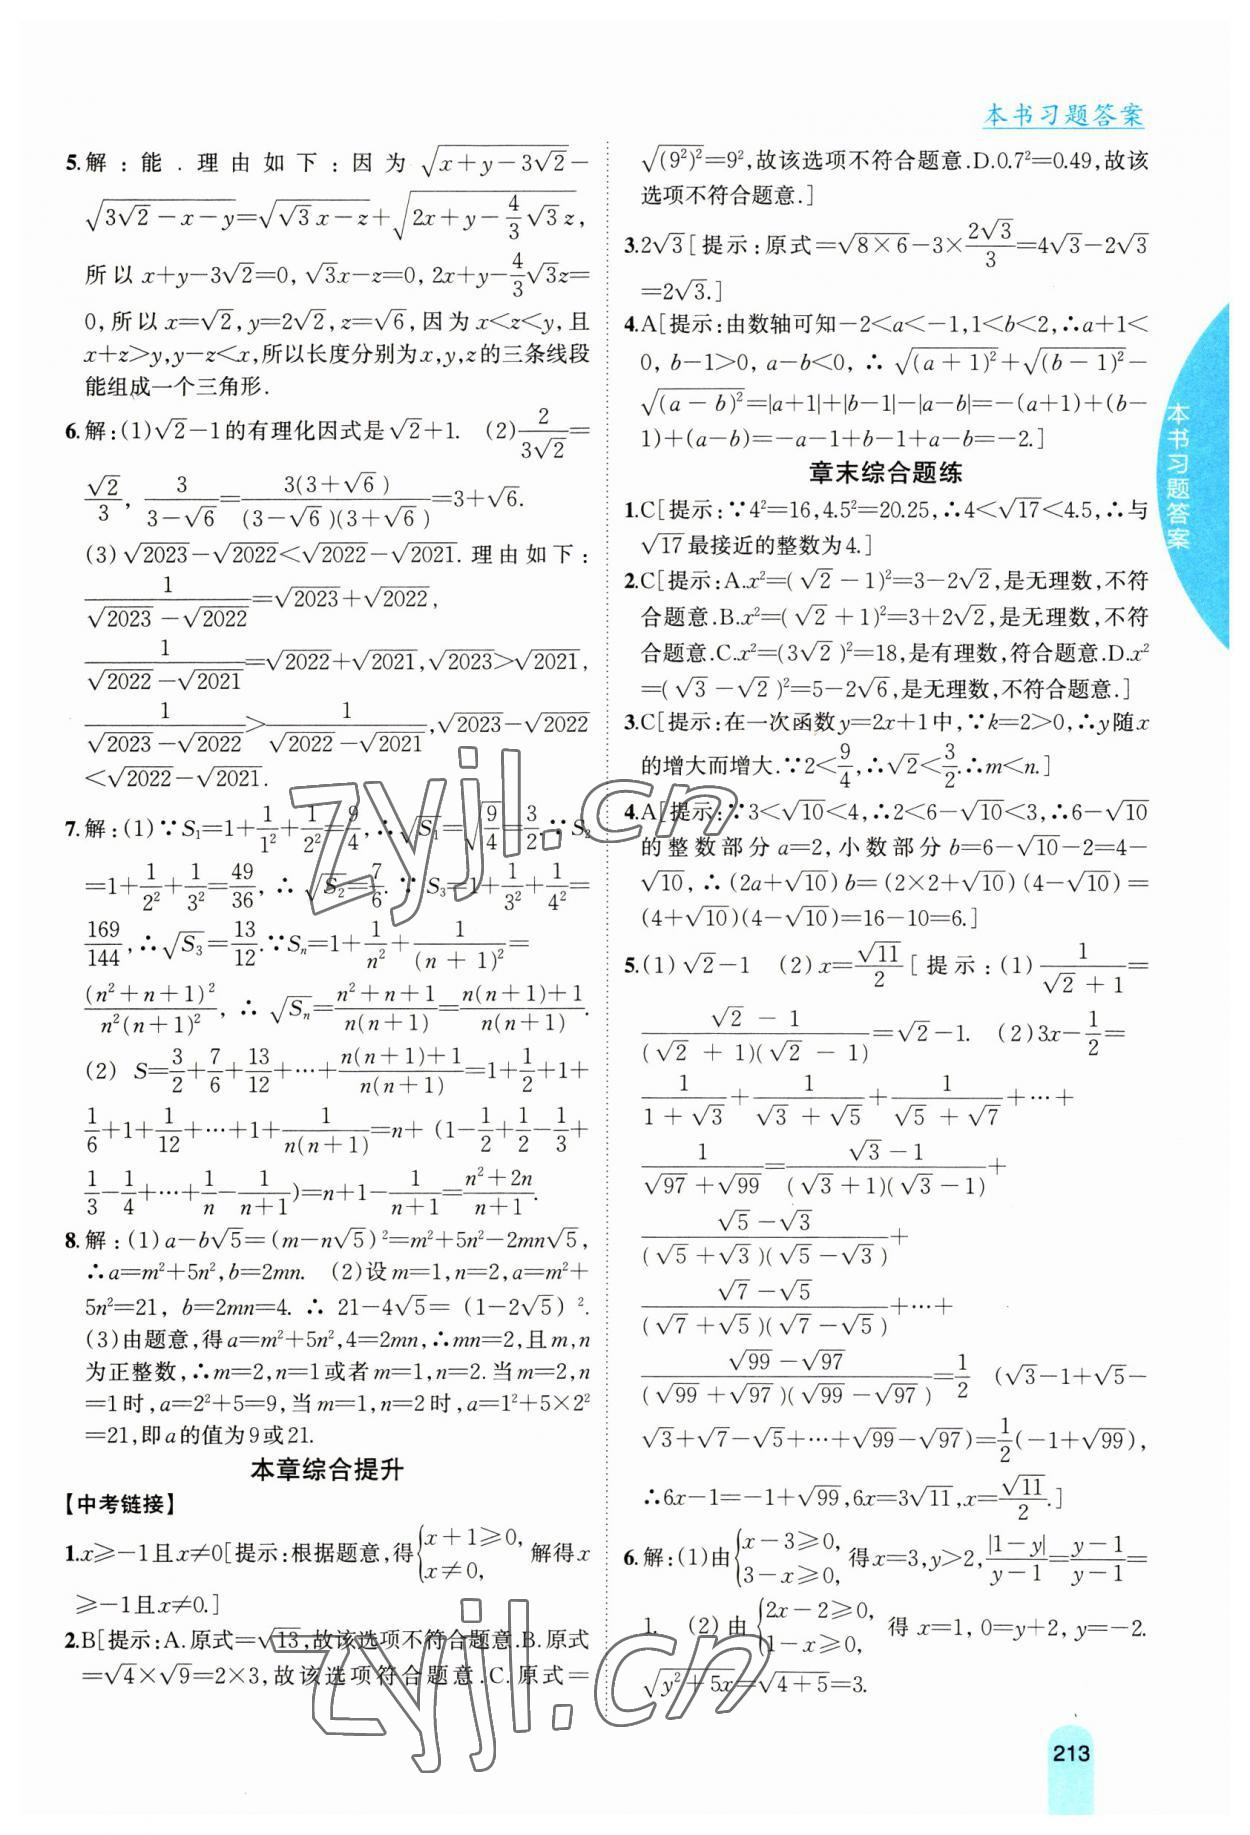 本书习题答案
5.解：能．理由如下：因为√(x+y-3√2)-
√(3√2-x-y)=√(√3x-z)+√(2x+y-4/3√3z),
所以x+y-3√2=0,√3x-z=0,2x+y-4/3√3z=
0,所以x=√2,y=2√2,z=√6,因为x<z<y,且
x+z>y,y-z<x,所以长度分别为x,y,z的三条线段
能组成一个三角形.
6.解:(1)√2-1的有理化因式是√2+1. (2)2/(3√2)=
√2/3, 3/(3-√6)=3(3+√6)/((3-√6)(3+√6))=3+√6.
(3)√2023-√2022<√2022-√2021.理由如下:
1/(√2023-√2022)=√2023+√2022,
1/(√2022-√2021)=√2022+√2021,√2023>√2021,
1/(√2023-√2022)>1/(√2022-√2021),√2023-√2022
<√2022-√2021.
7.解:(1)∵S₁=1+1/1²+1/2²=9/4,∴√S₁=√(9/4)=3/2.∵S₂
=1+1/2²+1/3²=49/36,∴√S₂=7/6.∵S₃=1+1/3²+1/4²=
169/144,∴√S₃=13/12.∵Sₙ=1+1/n²+1/(n+1)²=
(n²+n+1)²/(n²(n+1)²),∴√Sₙ=(n²+n+1)/(n(n+1))=(n(n+1)+1)/(n(n+1)).
(2) S=3/2+7/6+13/12+…+(n(n+1)+1)/(n(n+1))=1+1/2+1+
1/6+1+1/12+…+1+1/(n(n+1))=n+(1-1/2+1/2-1/3+
1/3-1/4+…+1/n-1/(n+1))=n+1-1/(n+1)=(n²+2n)/(n+1).
8.解:(1)a-b√5=(m-n√5)²=m²+5n²-2mn√5,
∴a=m²+5n²,b=2mn. (2)设m=1,n=2,a=m²+
5n²=21, b=2mn=4. ∴ 21-4√5=(1-2√5)².
(3)由题意,得a=m²+5n²,4=2mn,∴mn=2,且m,n
为正整数,∴m=2,n=1或者m=1,n=2.当m=2,n
=1时,a=2²+5=9,当m=1,n=2时,a=1²+5×2²
=21,即a的值为9或21.
本章综合提升
【中考链接】
1.x≥-1且x≠0[提示:根据题意,得{x+1≥0, x≠0, 解得x
≥-1且x≠0.]
2.B[提示:A.原式=√13,故该选项不符合题意.B.原式
=√4×√9=2×3,故该选项符合题意.C.原式=
√(9²)²=9²,故该选项不符合题意.D.0.7²=0.49,故该
选项不符合题意.]
3.2√3[提示:原式=√(8×6)-3×2√3/3=4√3-2√3
=2√3.]
4.A[提示:由数轴可知-2<a<-1,1<b<2,∴a+1<
0, b-1>0, a-b<0, ∴ √(a+1)²+√(b-1)²-
√(a-b)²=|a+1|+|b-1|-|a-b|=-(a+1)+(b-
1)+(a-b)=-a-1+b-1+a-b=-2.]
章末综合题练
1.C[提示:∵4²=16,4.5²=20.25,∴4<√17<4.5,∴与
√17最接近的整数为4.]
2.C[提示:A.x²=(√2-1)²=3-2√2,是无理数,不符
合题意.B.x²=(√2+1)²=3+2√2,是无理数,不符
合题意.C.x²=(3√2)²=18,是有理数,符合题意.D.x²
=(√3-√2)²=5-2√6,是无理数,不符合题意.]
3.C[提示:在一次函数y=2x+1中,∵k=2>0,∴y随x
的增大而增大.∵2<9/4,∴√2<3/2.∴m<n.]
4.A[提示:∵3<√10<4,∴2<6-√10<3,∴6-√10
的整数部分a=2,小数部分b=6-√10-2=4-
√10,∴(2a+√10)b=(2×2+√10)(4-√10)=
(4+√10)(4-√10)=16-10=6.]
5.(1)√2-1 (2)x=√11/2[提示:(1)1/(√2+1)=
(√2-1)/((√2+1)(√2-1))=√2-1. (2)3x-1/2=
1/(1+√3)+1/(√3+√5)+1/(√5+√7)+…+
1/(√97+√99)=(√3-1)/((√3+1)(√3-1))+
(√5-√3)/((√5+√3)(√5-√3))+
(√7-√5)/((√7+√5)(√7-√5))+…+
(√99-√97)/((√99+√97)(√99-√97))=1/2(√3-1+√5-
√3+√7-√5+…+√99-√97)=1/2(-1+√99),
∴6x-1=-1+√99,6x=3√11,x=√11/2.]
6.解:(1)由{x-3≥0, 3-x≥0, 得x=3,y>2,|1-y|/(y-1)=(y-1)/(y-1)=
1. (2)由{2x-2≥0, 1-x≥0, 得x=1,0=y+2,y=-2.
√(y²+5x)=√(4+5)=3.
本书习题答案
213
zyjl.cn
zyjl.cn